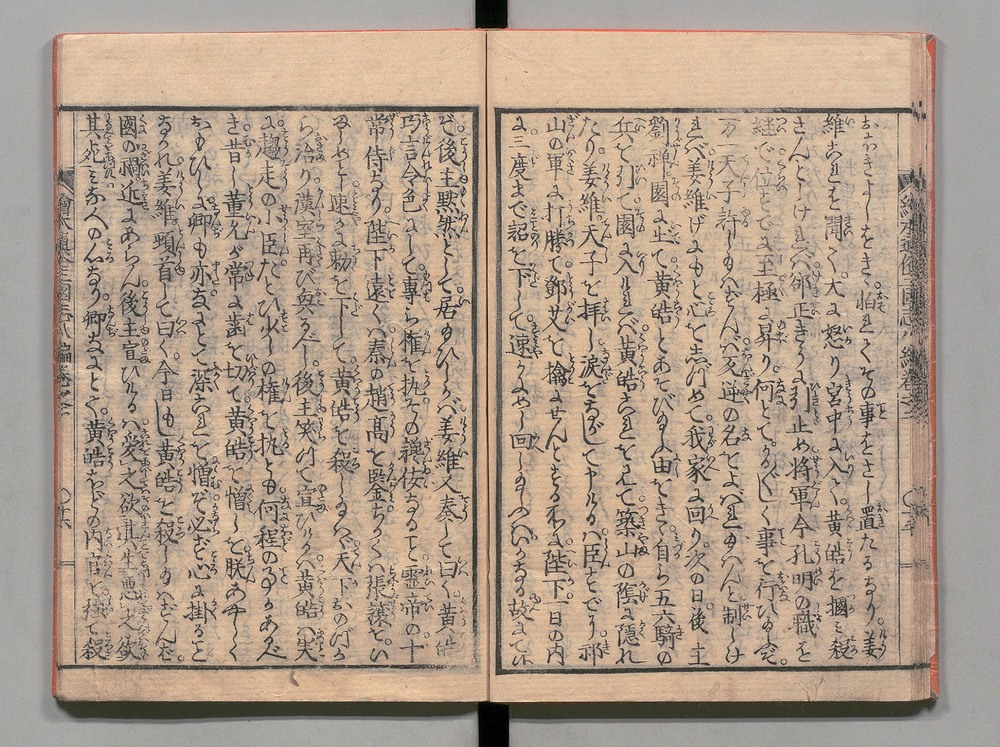 おそきよしをきき怕れてその事をさし置たるなり姜
維これを聞て大に怒り宮中に入て黄皓を摑み殺
さんとしければ郤正きうに引止め将軍今孔明の職を
継で位すでに至極に昇り何とてかろがろしく事を行ひ給ふぞ
万一天子許し給はずんば反逆の名をよばれ給はんと制しけ
れば姜維げにもと心をしづめて我家に回り次の日後主
劉禅園に出て黄皓とあそび給ふ由をきき自ら五六騎の
兵を引て園に入ければ黄皓これをみて築山の陰に隠れ
たり姜維天子を拝し涙をながして申けるは臣すでに祁
山の軍に打勝て鄧艾を擒にせんとする所に陛下一日の内
に三度まで詔を下して速かにめし回し給ふはいかなる故にてい
ぞ後主黙然として居給ひしかば姜維又奏して曰く黄皓
巧言令色にして専ら権を執その奸佞なること霊帝の十
常侍なり陛下遠くは秦の趙高を鑒ちかくは張譲をい
ましめ速かに勅を下して黄皓を殺し給はば天下おのづか
ら治り漢室再び興べし後主笑て宣ひけるは黄皓は失
に趨走の小臣たとひ少しの権を執とも何程の事かあるべ
き昔し董允が常に歯を切て黄皓を憎しを朕あやしく
おもひしに卿も亦なにとて深これを憎ぞ必ず心に掛ること
なかれ姜維頭首して曰く今日もし黄皓を殺し給はずんば
国の禍近にあらん後主宣ひけるは愛之欲其生悪之欲
其死とみなへのんなり卿なにとて黄皓などの内官を極て殺